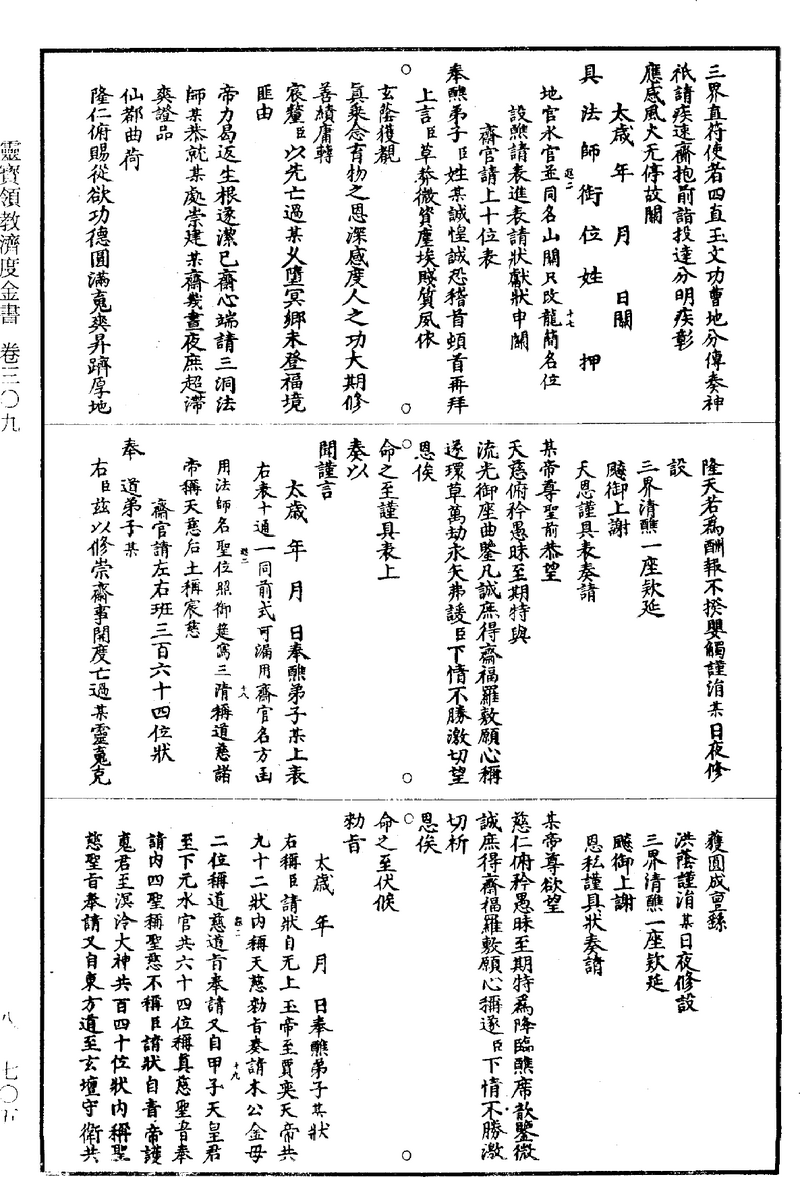 三界直符使者四直玉文功曹地分傳奏神
祇請疾速齎抱前詣投達分明疾彰
應感風火无停故關
太歲 年 月 日關
具法師銜位姓 押
地官水官並同名山關只改龍簡名位
設醮請表進表請狀獻狀申關
齋官請上十位表
奉醮弟子臣姓某誠惶誠恐稽首頓首再拜
上言臣草莽微資塵埃賤質夙依
玄蔭獲覩
眞乘念育物之恩深感度人之功大期修
善績庸轉
宸釐臣以先亡過某乂墮冥鄉未登福境
匪由
帝力曷返生根遂潔己齋心端請三洞法
師某恭就某處崇建某齋幾晝夜庶超滯
爽證品
仙都曲荷
隆仁俯賜從欲功德圓滿䰟爽昇躋厚地
隆天若爲酬報不揆嬰觸謹涓某日夜修
設
三界清醮一座欵延
飈御上謝
天恩謹具表奏請
某帝尊聖前恭望
天慈俯矜愚昧至期特與
流光御座曲鑒凡誠庶得齋福羅敷願心稱
遂環草萬劫永矢弗諼臣下情不勝激切望
恩俟
命之至謹具表上
奏以
聞謹言
太歲 年 月 日奉醮弟子某上表
右表十通一同前式可漏用齋官名方函
用法師名聖位照御筵寫三清稱道慈諸
帝稱天慈后土稱宸慈
齋官請左右班三百六十四位狀
奉 道弟子某
右臣玆以修崇齋事開度亡過某靈䰟克
獲圓成亶繇
洪蔭謹涓某日夜修設
三界清醮一座欵延
飈御上謝
恩私謹具狀奏請
某帝尊欲望
慈仁俯矜愚昧至期特爲降臨醮席歆鑒微
誠庶得齋福羅敷願心稱遂臣下情不勝激
切祈
恩俟
命之至伏候
勑旨
太歲 年 月 日奉醮弟子某狀
右稱臣請狀自无上玉帝至賈奕天帝共
九十二狀內稱天慈勑旨奏請木公金母
二位稱道慈道旨奉請又自甲子天皇君
至下元水官共六十四位稱眞慈聖旨奉
請內四聖稱聖慈不稱臣請狀自青帝護
䰟君至溟泠大神共百四十位狀內稱聖
慈聖旨奉請又自東方道至玄壇守衛共
靈寶領教濟度金書 卷三〇九
八 七〇五